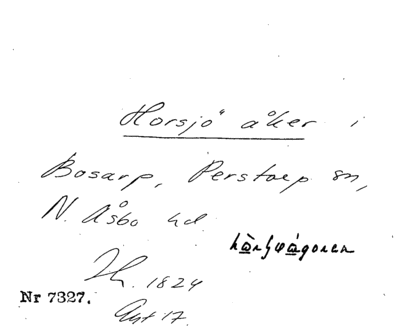 Horsjö åker i
Bosarp, Perstorp sn,
N. Åsbo hd.
1824
Nr 7327.
Akt 17